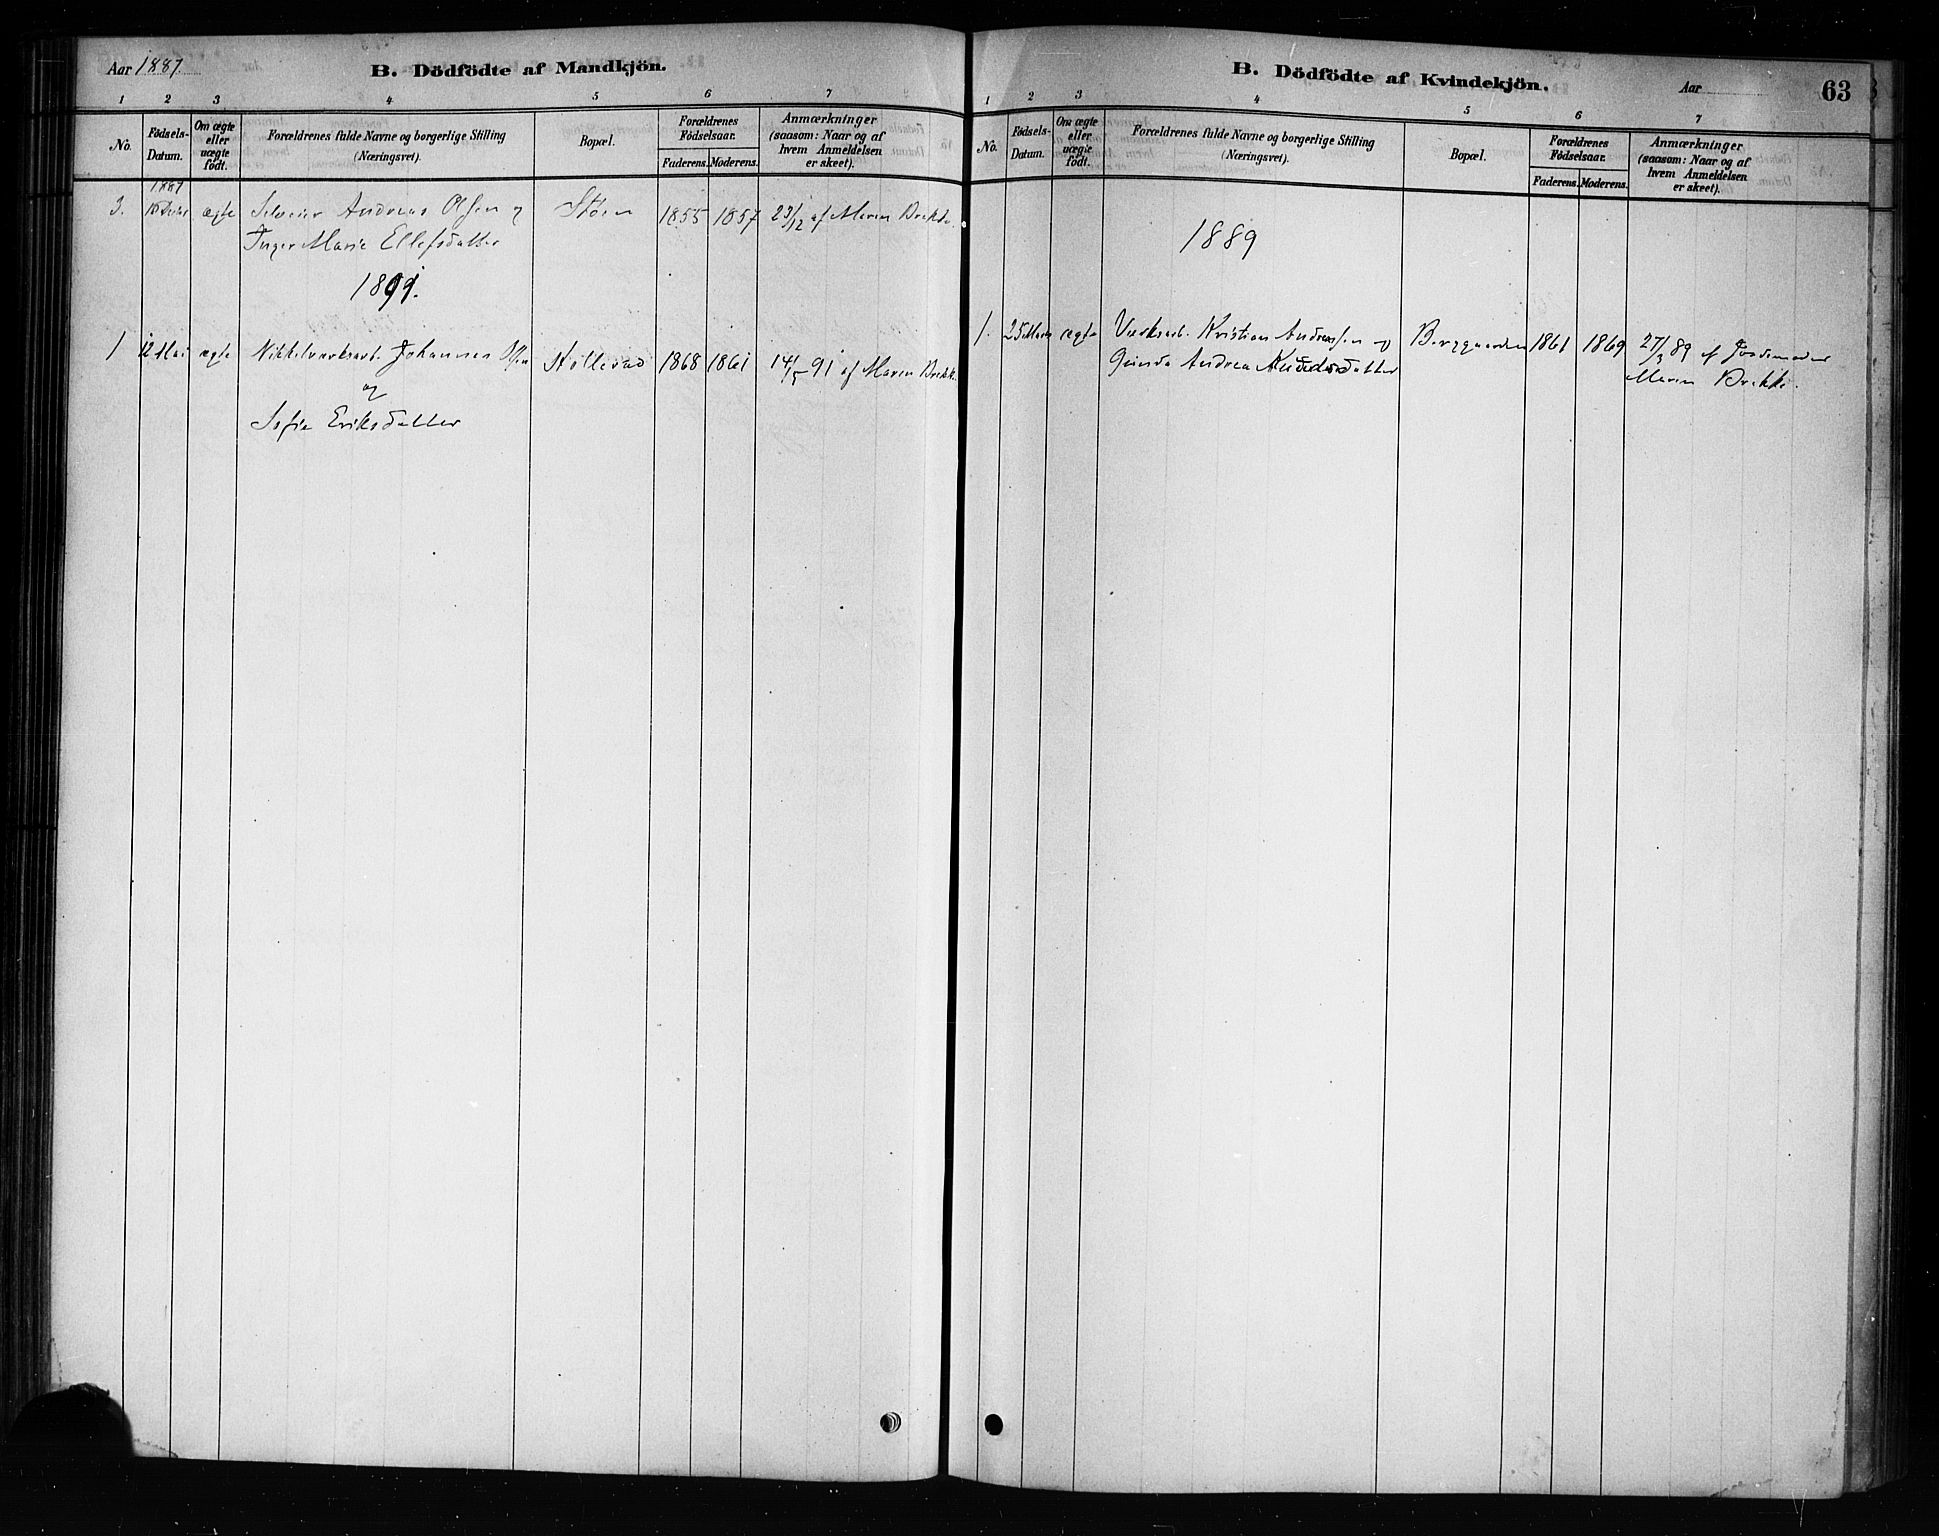 Aar 1887
B. Dödfödte af Mandkjön.
1 2 3 4 5 6 7
No.
Födsels-
Datum.
Om ægte
eller
uægte
födt.
Forældrenes fulde Navne og borgerlige Stilling
(Næringsvei).
Bopæl.
Forældrenes
Födselsaar.
Faderens. Moderens.
Anmærkninger
(saasom: Naar og af
hvem Anmeldelsen
er skeet).
1887
3. ægte Andreas Olsen og Stöen 1855 1857 23/12 af Maren Brekke.
Inger Marie Ellefsdatter
1891.
1 12 Mai ægte Nikkelverksarb. Johannes Olsen 1868 1861 14/5 91 af Maren Brekke.
og
Sofie Eriksdatter
B. Dödfödte af Kvindekjön.
Aar
63
1 2 3 4 5 6 7
No.
Födsels-
Datum.
Om ægte
eller
uægte
födt.
Forældrenes fulde Navne og borgerlige Stilling
(Næringsvei).
Bopæl.
Forældrenes
Födselsaar.
Faderens. Moderens.
Anmærkninger
(saasom: Naar og af
hvem Anmeldelsen
er skeet).
1889
1. 25 Marts ægte Værksarb. Kristian Andreassen og Berggaarden 1861 1869 27/3 89 af Jordemoder
Gunda Andrea Maren Brekke.